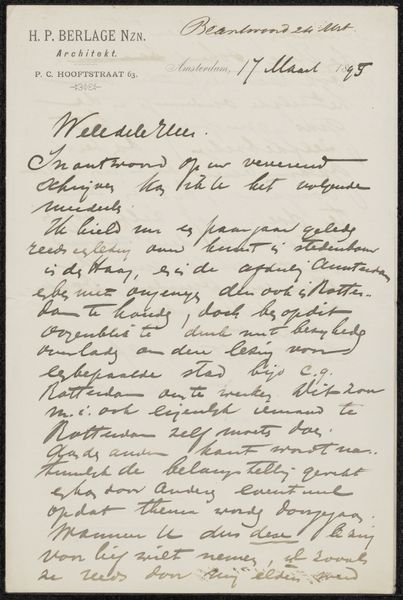 H. P. BERLAGE NZN.
Architekt.
P. C. HOOFTSTRAAT 63.
Beantwoord 24 Mrt.
Amsterdam, 17 Maart 1895
WelEdele Heer.
In antwoord op uw vererend
schrijven kan ik U het volgende
Ik hield een paar jaar geleden
reeds over kunst in stedenbouw
in den Haag, en in de afdeeling Amsterdam
ook in Rotter-
dam te houden, doch ben op dit
oogenblik te druk met bezigheden
overladen om deze lezing voor
een bepaalde stad bijv. c.q.
Rotterdam om te werken. Dit zou
m.i. ook eigenlijk iemand te
Rotterdam zelf moeten doen.
Aan de andere kant wordt na-
tuurlijk de belangstelling gewekt
en kan door anderen eventueel
op dat thema worden doorgegaan.
Wanneer U dus deze lezing
voor lief wilt nemen, zooals
ze reeds door mij elders werd